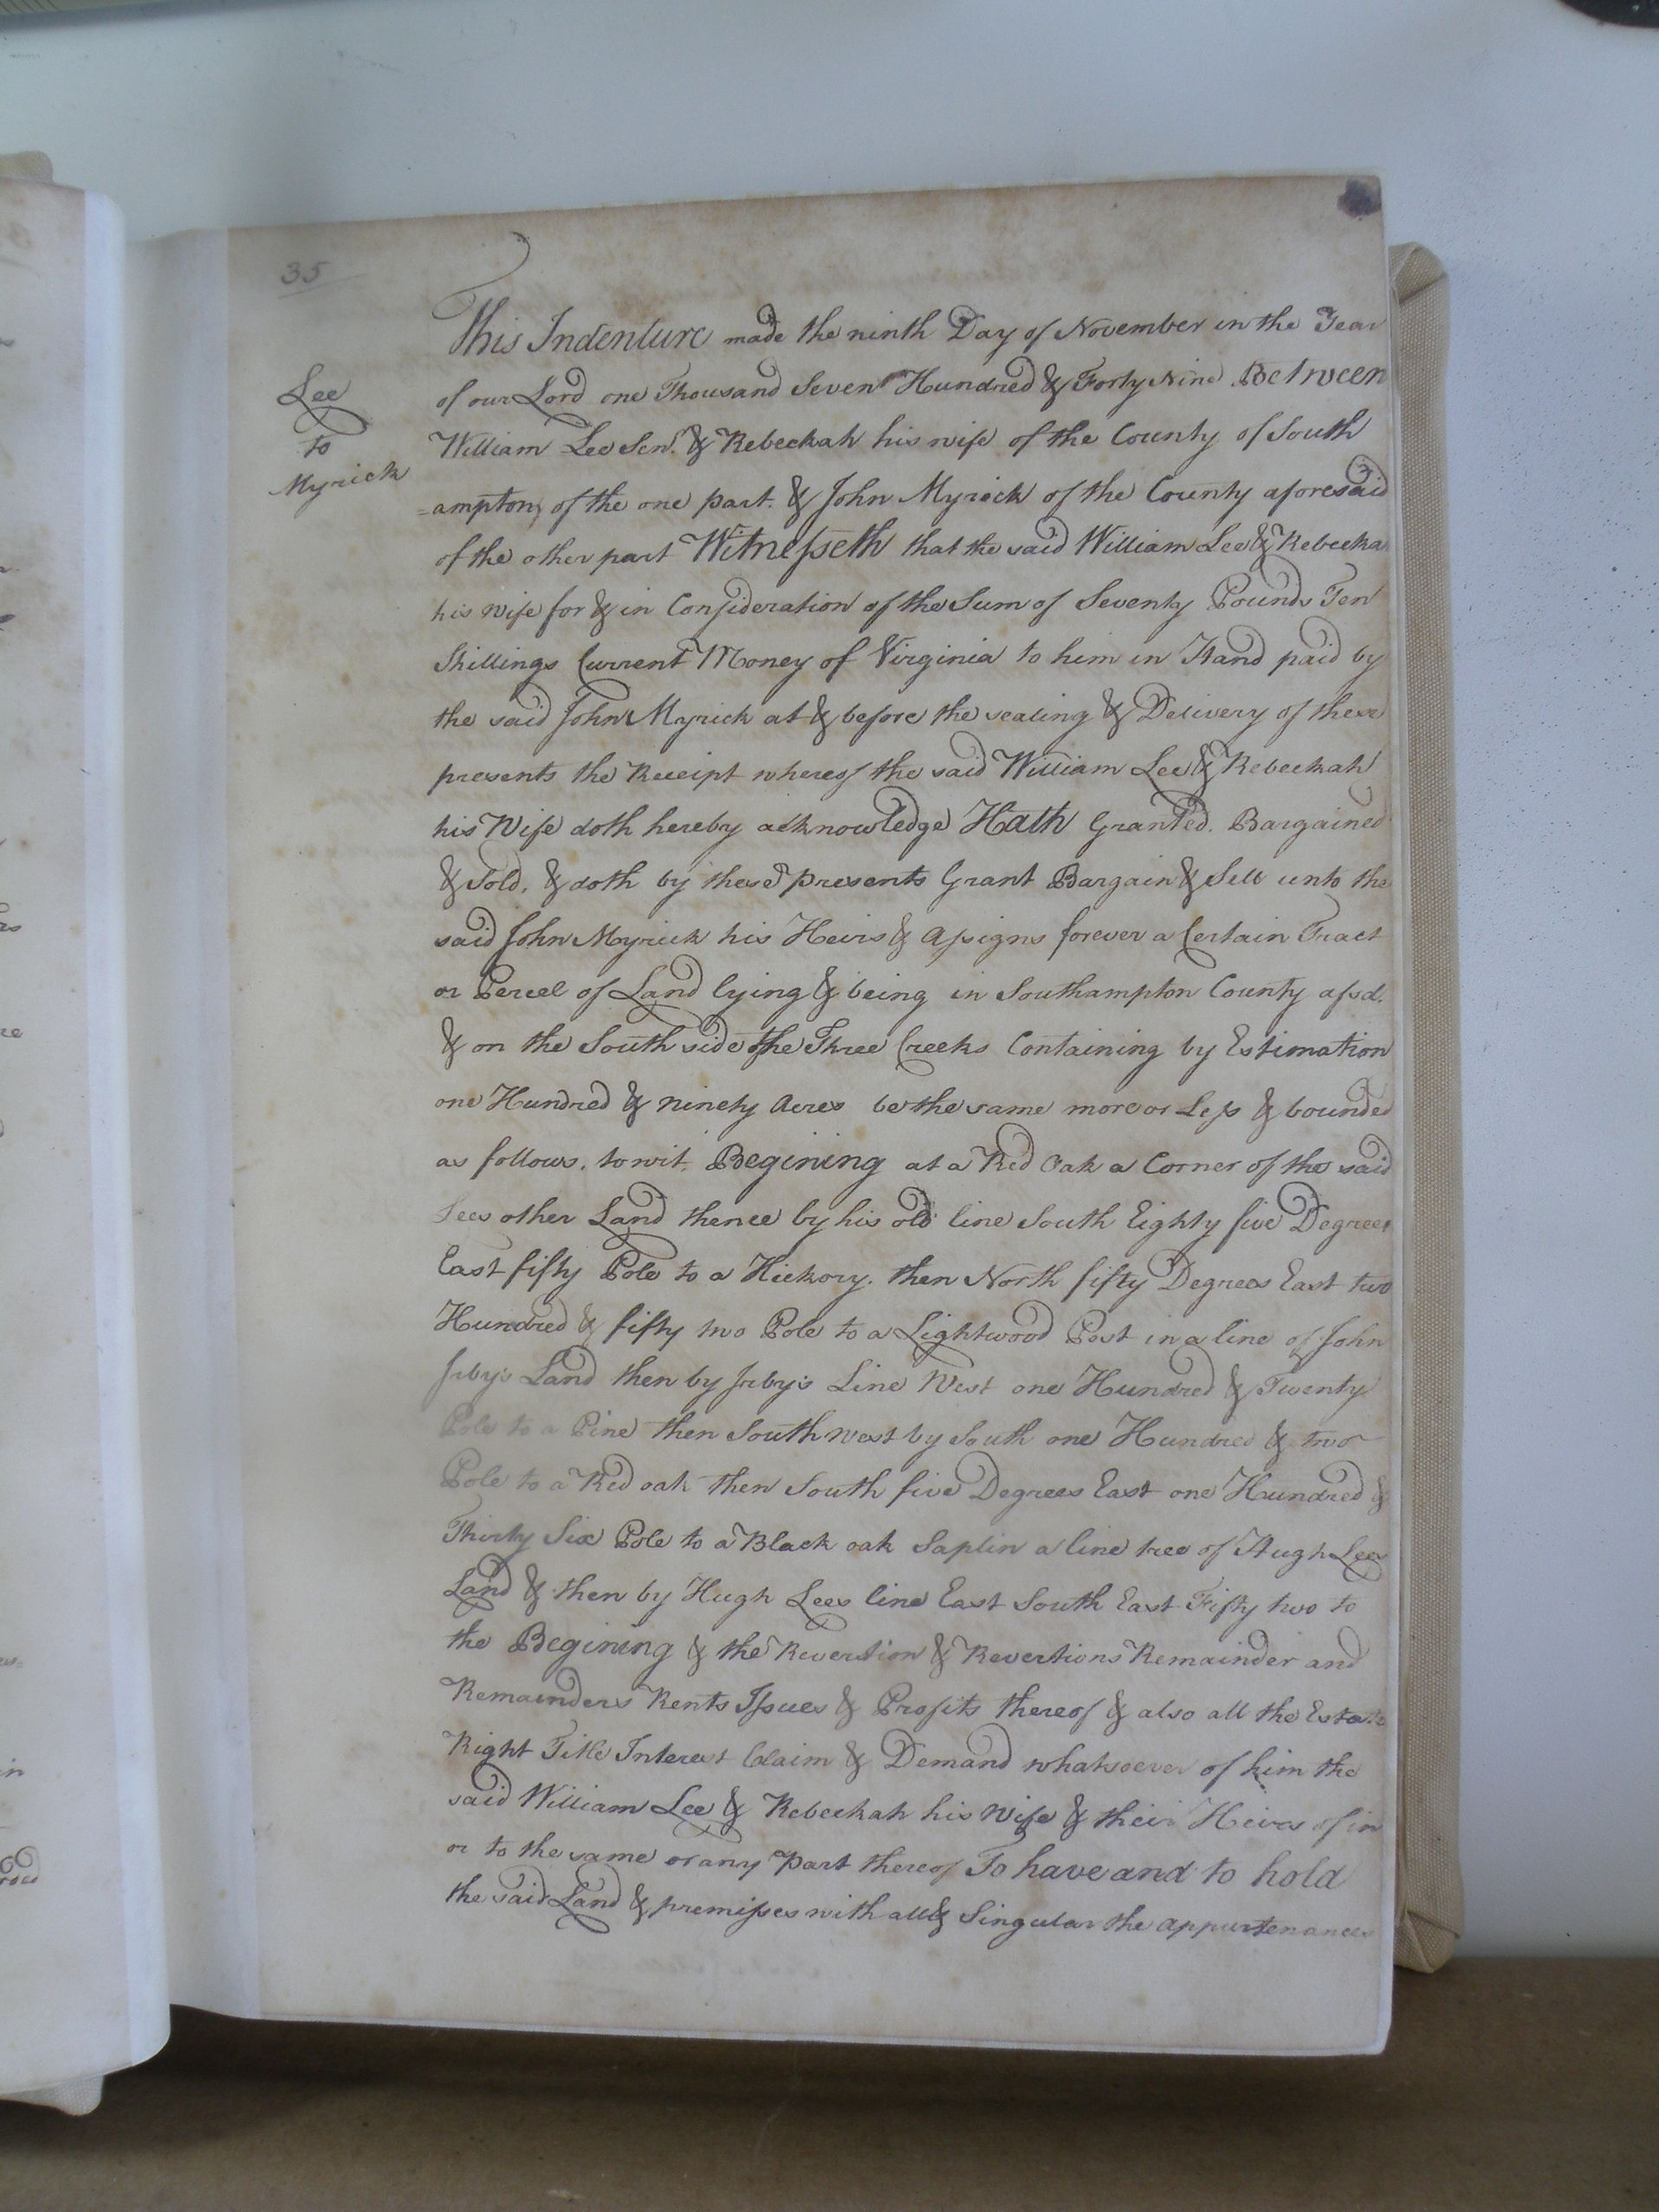 35
Lee
to
Myrick
This Indenture made the ninth Day of November in the Year
of our Lord one Thousand Seven Hundred & Forty Nine Between
William Lee Senr. & Rebeckah his wife of the County of South
=ampton of the one part. & John Myrick of the County aforesaid
of the other part Witnesseth that the said William Lee & Rebeckah
his wife for & in Consideration of the Sum of Seventy Pounds Ten
Shillings Current Money of Virginia to him in Hand paid by
the said John Myrick at & before the sealing & Delivery of these
presents the Receipt whereof the said William Lee & Rebeckah
his Wife doth hereby acknowledge Hath Granted. Bargained
& Sold, & doth by these presents Grant Bargain & Sell unto the
said John Myrick his Heirs & Assigns forever a Certain Tract
or Percel of Land lying & being in Southampton County afsd.
& on the South side of the Three Creeks Containing by Estimation
one Hundred & ninety Acres be the same more or Less & bounded
as follows. to wit. Begining at a Red Oak a Corner of the said
Lees other Land thence by his old line South Eighty five Degrees
East fifty Pole to a Hickory. then North fifty Degrees East two
Hundred & fifty two Pole to a Lightwood Post in a line of John
Irby's Land then by Irby's Line West one Hundred & Twenty
Pole to a Pine then South west by South one Hundred & two
Pole to a Red oak then South five Degrees East one Hundred &
Thirty Six Pole to a Black oak Saplin a line tree of Hugh Lees
Land & then by Hugh Lees line East South East Fifty two to
the Begining & the Revertion & Revertions Remainder and
Remainders Rents Issues & Profits thereof & also all the Estate
Right Title Interest Claim & Demand whatsoever of him the
said William Lee & Rebeckah his Wife & their Heirs of in
or to the same or any Part thereof To have and to hold
the said Land & premisses with all & Singular the appurtenances